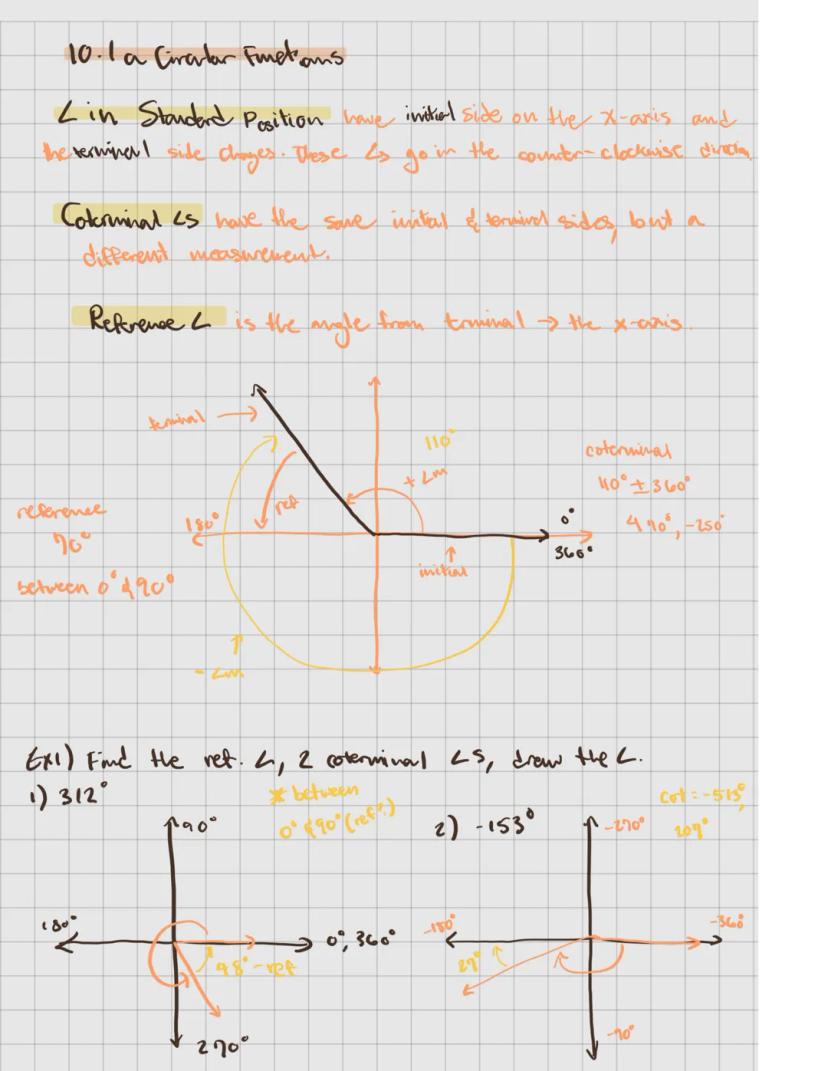 10.1a Circular Functions
∠ in Standard Position have initial side on the x-axis and
the terminal side changes. These ∠s go in the counter-clockwise direction.
Coterminal ∠s have the same initial & terminal sides, but a
different measurement.
Reference ∠ is the angle from terminal → the x-axis.
terminal
110°
+∠m
coterminal
110° ± 360°
490°, -250°
reference
70°
between 0° & 90°
ref
180°
0°
360°
initial
-∠m
Ex1) Find the ref. ∠, 2 coterminal ∠s, draw the ∠.
1) 312°
* between
0° & 90° (ref°)
2) -153°
cot = -513°,
207°
90°
-270°
180°
0°, 360°
-180°
-360°
48° - ref
27°
270°
-90°